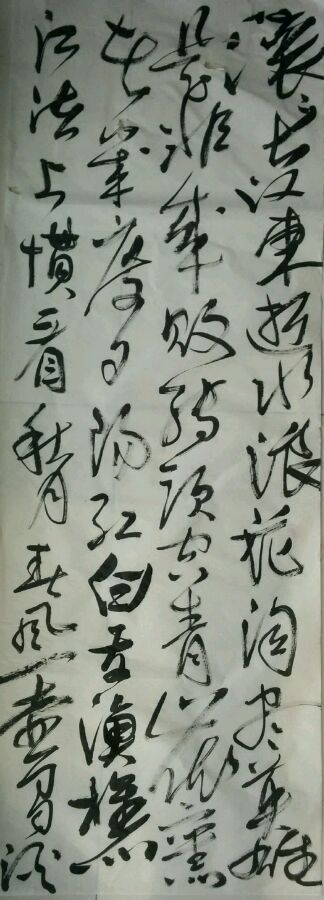 滚々长江東逝水浪花淘尽英雄
是非成敗转頭空青山依舊
在几度夕阳红白发漁樵
江渚上慣看秋月春風一壺